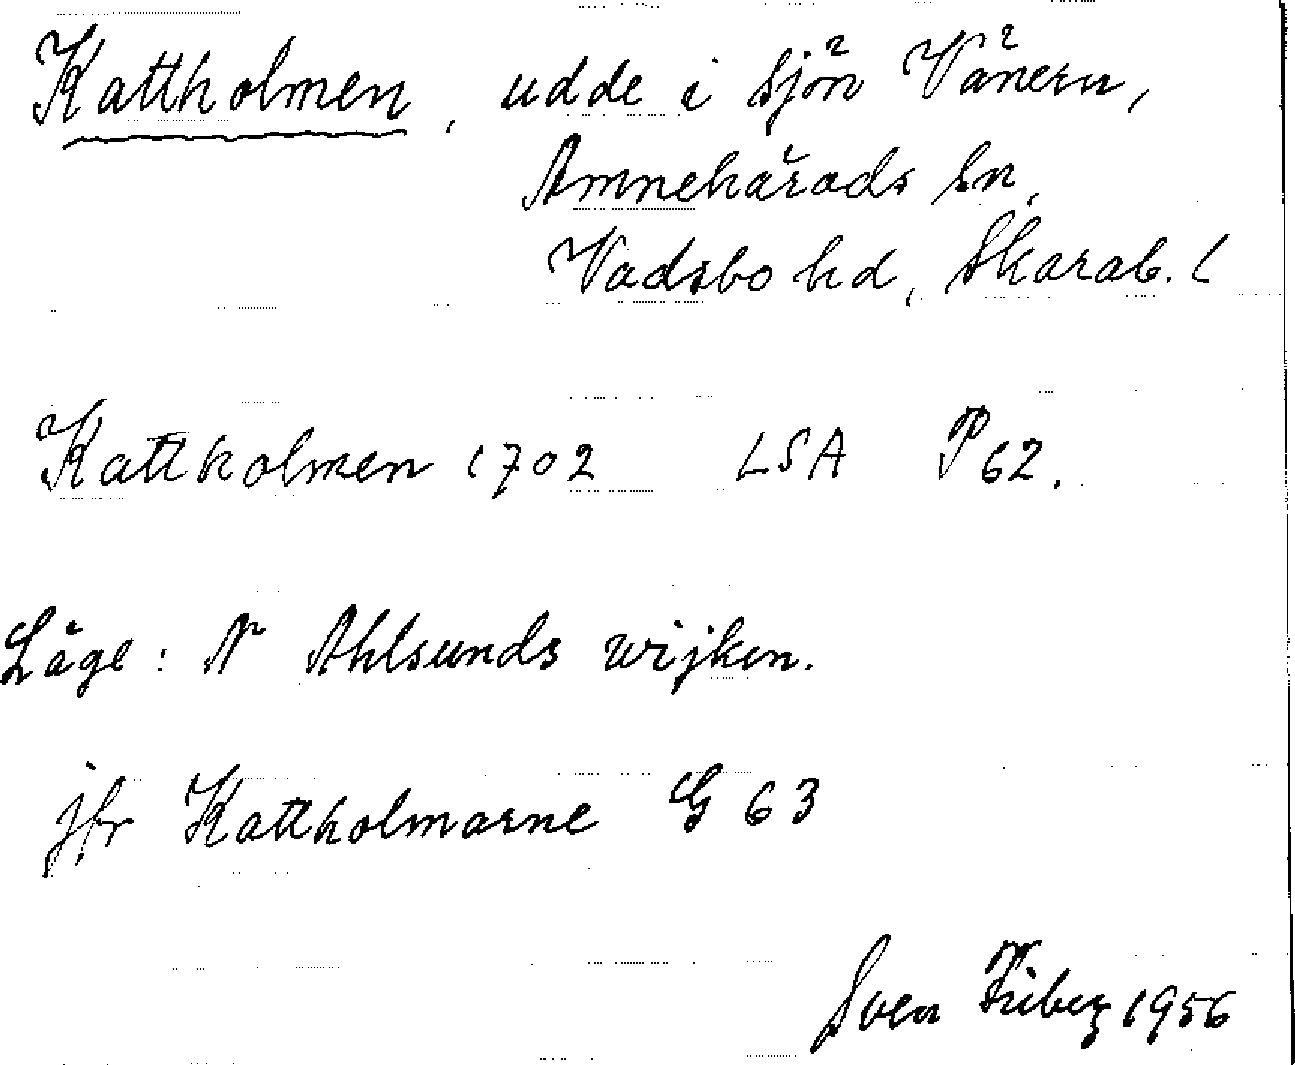 Kattholmen, udde i sjön Vänern,
Amnehärads sn,
Vadsbo hd, Skarab. l
Kattholmen 1702 LSA P 62.
Läge: N Ahlsunds wijken.
jfr Kattholmarne G 63
Sven 1956